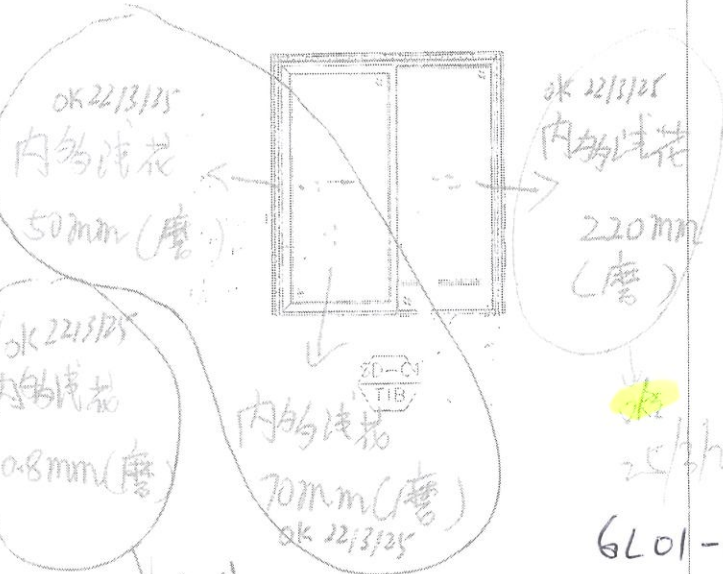 ok 22/3/25
内多浅花
50mm (磨)
ok 22/3/25
内多浅花
220mm
(磨)
ok 22/3/25
内多浅花
0.8mm (磨)
SD-C1
T1B
内多浅花
70mm (磨)
ok 22/3/25
GL01-